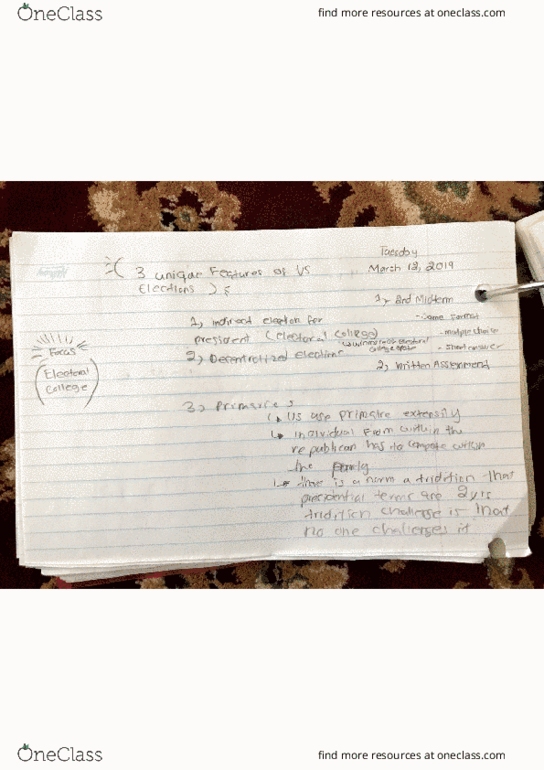 OneClass
find more resources at oneclass.com
Tuesday
March 12, 2019
3 unique Features of US
Elections
1, 2nd Midterm
- Same Format
- multiple choice
- Short answer
2, Written Assignment
1, indirect election for
president (electoral college)
college
2, Decentralized elections
Focus
Electoral
College
3,
US use primaire extensily
individual From within the
republican has to compete within
the party
ther is a norm a tridition that
precidential terms are 2 yrs
tridition challage is that
no one challenges it
OneClass
find more resources at oneclass.com